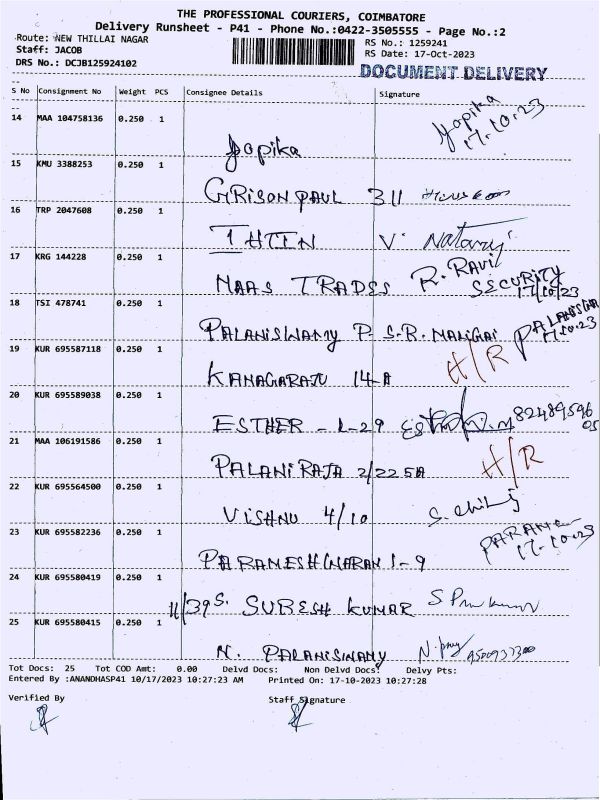 THE PROFESSIONAL COURIERS, COIMBATORE
Delivery Runsheet - P41 - Phone No.:0422-3505555 - Page No.:2
Route: NEW THILLAI NAGAR RS No.: 1259241
Staff: JACOB RS Date: 17-Oct-2023
DRS No.: DCJB125924102 DOCUMENT DELIVERY
S No Consignment No Weight PCS Consignee Details Signature
14 MAA 104758136 0.250 1
Jopika Jopika 17.10.23
15 KMU 3388253 0.250 1
GRISON PAUL 311
16 TRP 2047608 0.250 1
ITHIEN V. Nataraj
17 KRG 144228 0.250 1
MAAS TRADES R. RAVI SECURITY 17/10/23
18 TSI 478741 0.250 1
PALANISWAMY P. S.R. MALIGAI
19 KUR 695587118 0.250 1
KANAGARAJU 14-A H/R
20 KUR 695589038 0.250 1
ESTHER - L-29 8248959605
21 MAA 106191586 0.250 1
PALANIRAJA 2/225A H/R
22 KUR 695564500 0.250 1
VISHNU 4/10
23 KUR 695582236 0.250 1
PARAMESHWARAN 1-9 PARAME 17-10-23
24 KUR 695580419 0.250 1
11/39 S. SURESH KUMAR
25 KUR 695580415 0.250 1
N. PALANISWAMY
Tot Docs: 25 Tot COD Amt: 0.00 Delvd Docs: Non Delvd Docs: Delvy Pts:
Entered By :ANANDHASP41 10/17/2023 10:27:23 AM Printed On: 17-10-2023 10:27:28
Verified By Staff Signature